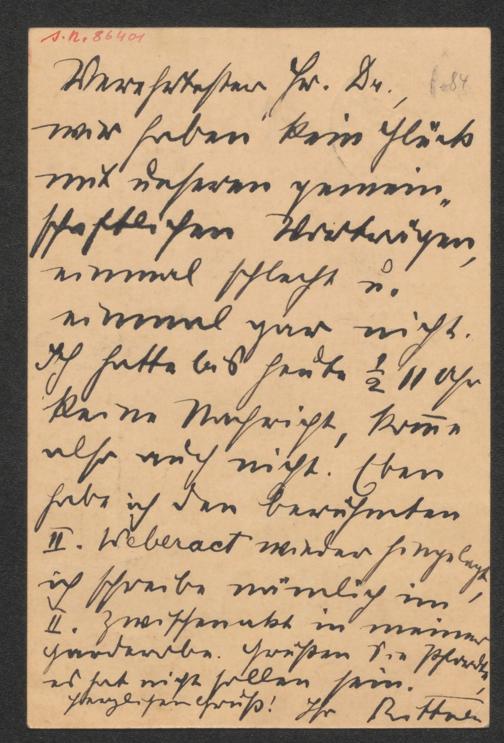 J.N. 86401
Verehrtester Hr. Dr.,
wir haben kein Glück
mit unseren gemein-
schaftlichen Vorträgen,
einmal schlecht u.
einmal gar nicht.
Ich hatte bis heute ½ 11 Uhr
keine Nachricht, kom̄e
also auch nicht. Eben
habe ich den berühmten
II. Weberact wieder hingelegt,
ich schreibe nämlich im
II. Zwischenakt in meiner
Garderobe. Grüßen Sie
es hat nicht sollen sein.
Herzlichen Gruß! Ihr Rittner